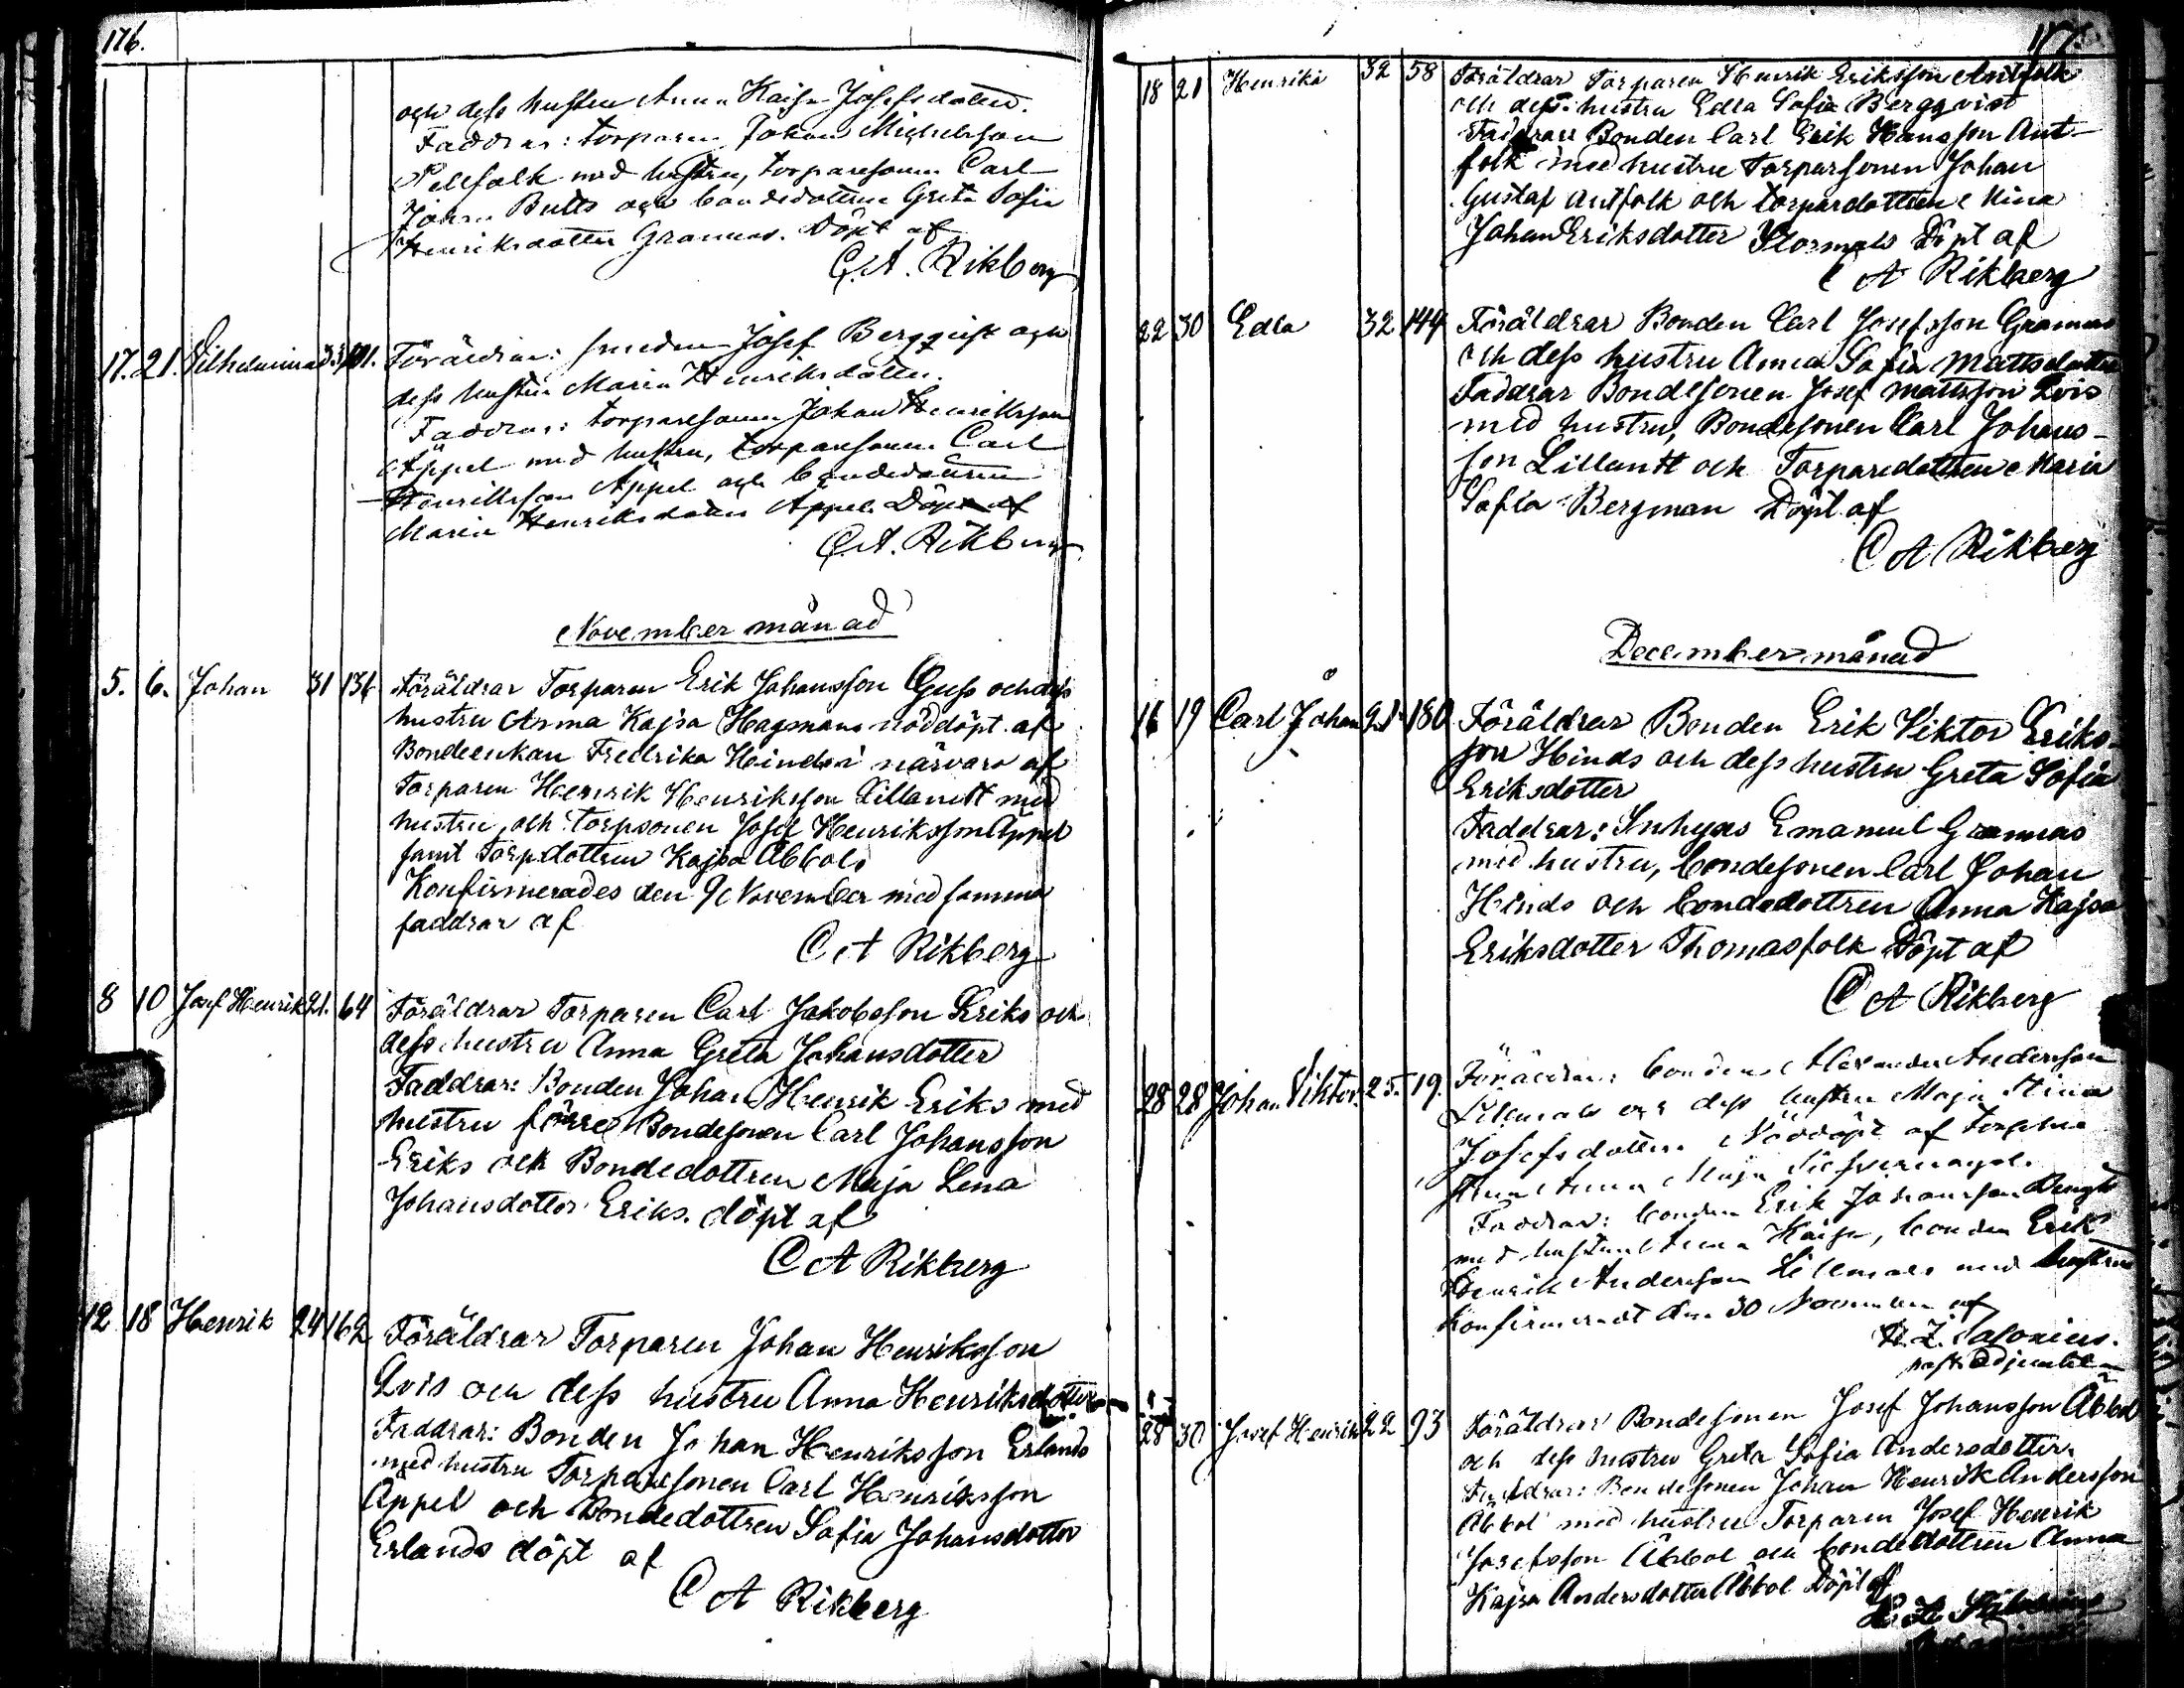 176.
och dess hustru Anna Kajsa Josefsdotter.
Faddrar: torparen Johan Michelsson
Pellfolk med hustru, torparesonen Carl
Johan Butts och bondedottren Greta Sofia
Henriksdotter Grannas. Döpt af
C.A. Rikberg
17. 21. Vilhelmina 33. Föräldrar: smeden Josef Bergqvist och
dess hustru Maria Henriksdotter.
Faddrar: torparesonen Johan Henriksson
Äppel med hustru, torparesonen Carl
Henriksson Äppel och bondedottren
Maria Henriksdotter Äppel. Döpt af
C.A. Rikberg
November månad
5. 6. Johan 31 136 Föräldrar Torparen Erik Johansson Guss och dess
hustru Anna Kajsa Hagman nöddöpt af
Bondeenkan Fredrika Hinds i närvaro af
Torparen Henrik Henriksson Lillantt med
hustru och torpsonen Josef Henriksson Äppel
samt Torpdottren Kajsa Abbols
Konfirmerades den 9 November med samma
faddrar af
C A Rikberg
8 10 Josef Henrik 21. 64 Föräldrar Torparen Carl Jakobsson Eriks och
dess hustru Anna Greta Johansdotter
Faddrar: Bonden Johan Henrik Eriks med
hustru förre Bondesonen Carl Johansson
Eriks och Bondedottren Maja Lena
Johansdotter Eriks. döpt af
C A Rikberg
12 18 Henrik 24 162 Föräldrar Torparen Johan Henriksson
Lois och dess hustru Anna Henriksdotter
Faddrar: Bonden Johan Henriksson Erlands
med hustru Torparesonen Carl Henriksson
Äppel och Bondedottren Sofia Johansdotter
Erlands döpt af
C A Rikberg
18 21 Henrika 32 58 Föräldrar Torparen Henrik Eriksson Antfolk
och dess hustru Edla Sofia Bergqvist
Faddrar Bonden Carl Erik Hansson Ant-
folk med hustru Torparsonen Johan
Gustaf Antfolk och torpardottren Mina
Johan Eriksdotter Stormels Döpt af
C A Rikberg
22 30 Edla 32 144 Föräldrar Bonden Carl Josefsson Grannas
och dess hustru Anna Sofia Mattsdotter
Faddrar Bondesonen Josef Mattsson Lois
med hustru, Bondesonen Carl Johans-
son Lillantt och Torparedottren Maria
Sofia Bergman Döpt af
C A Rikberg
December månad
16 19 Carl Johan 21 180 Föräldrar Bonden Erik Viktor Eriks-
son Hinds och dess hustru Greta Sofia
Eriksdotter
Faddrar: Inhyses Emanuel Grannas
med hustru, bondesonen Carl Johan
Hinds och bondedottren Anna Kajsa
Eriksdotter Thomasfolk Döpt af
C A Rikberg
28 28 Johan Viktor. 25. 19. Föräldrar: bonden Alexander Andersson
Lillmals och dess hustru Maja Stina
Josefsdotter. Nöddöpt af
Anna Maja
Faddrar: bonden Erik Johansson Bengts
med hustru Anna Kajsa, bonden Erik
Henrik Andersson Lillmals med hustru
Konfirmeradt den 30 November af
K. Z. Salonius.
past. adjunkt
28 30 Josef Henrik 22 93 Föräldrar Bondesonen Josef Johansson Abbol
och dess hustru Greta Sofia Andersdotter.
Faddrar: Bondesonen Johan Henrik Andersson
Abbol med hustru Torparen Josef Henrik
Josefsson Abbol och bondedottren Anna
Kajsa Andersdotter Abbol Döpt af